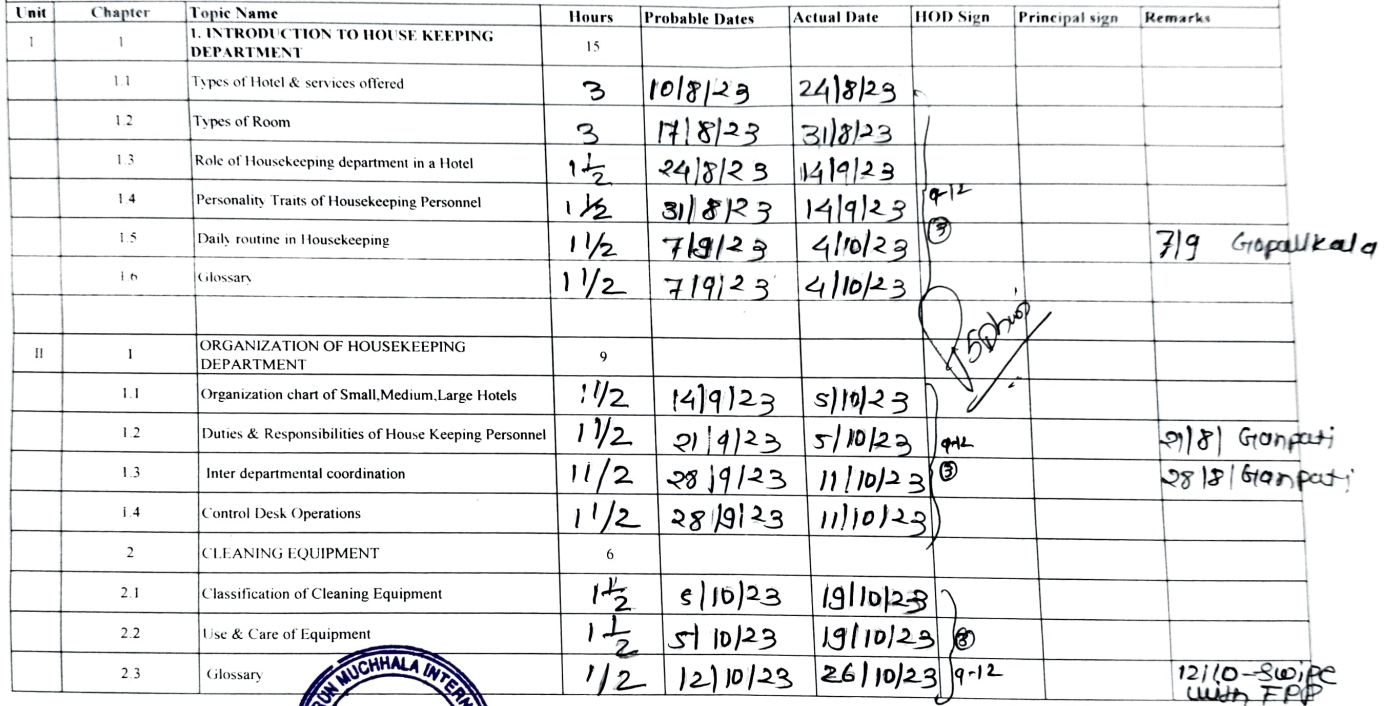 Unit Chapter Topic Name Hours Probable Dates Actual Date HOD Sign Principal sign Remarks
I 1 1. INTRODUCTION TO HOUSE KEEPING DEPARTMENT 15
1.1 Types of Hotel & services offered 3 10/8/23 24/8/23
1.2 Types of Room 3 17/8/23 31/8/23
1.3 Role of Housekeeping department in a Hotel 1 1/2 24/8/23 14/9/23
1.4 Personality Traits of Housekeeping Personnel 1 1/2 31/8/23 14/9/23 9-12
1.5 Daily routine in Housekeeping 1 1/2 7/9/23 4/10/23 3 7/9 Gopalkala
1.6 Glossary 1 1/2 7/9/23 4/10/23
II 1 ORGANIZATION OF HOUSEKEEPING DEPARTMENT 9
1.1 Organization chart of Small,Medium,Large Hotels 1 1/2 14/9/23 5/10/23
1.2 Duties & Responsibilities of House Keeping Personnel 1 1/2 21/9/23 5/10/23 9-12 21/8/ Ganpati
1.3 Inter departmental coordination 1 1/2 28/9/23 11/10/23 3 28/8/ Ganpati
1.4 Control Desk Operations 1 1/2 28/9/23 11/10/23
2 CLEANING EQUIPMENT 6
2.1 Classification of Cleaning Equipment 1 1/2 5/10/23 19/10/23
2.2 Use & Care of Equipment 1 1/2 5/10/23 19/10/23
2.3 Glossary 1/2 12/10/23 26/10/23 9-12 12/10-Swipe
with FPP
MUCHHALA INTERN